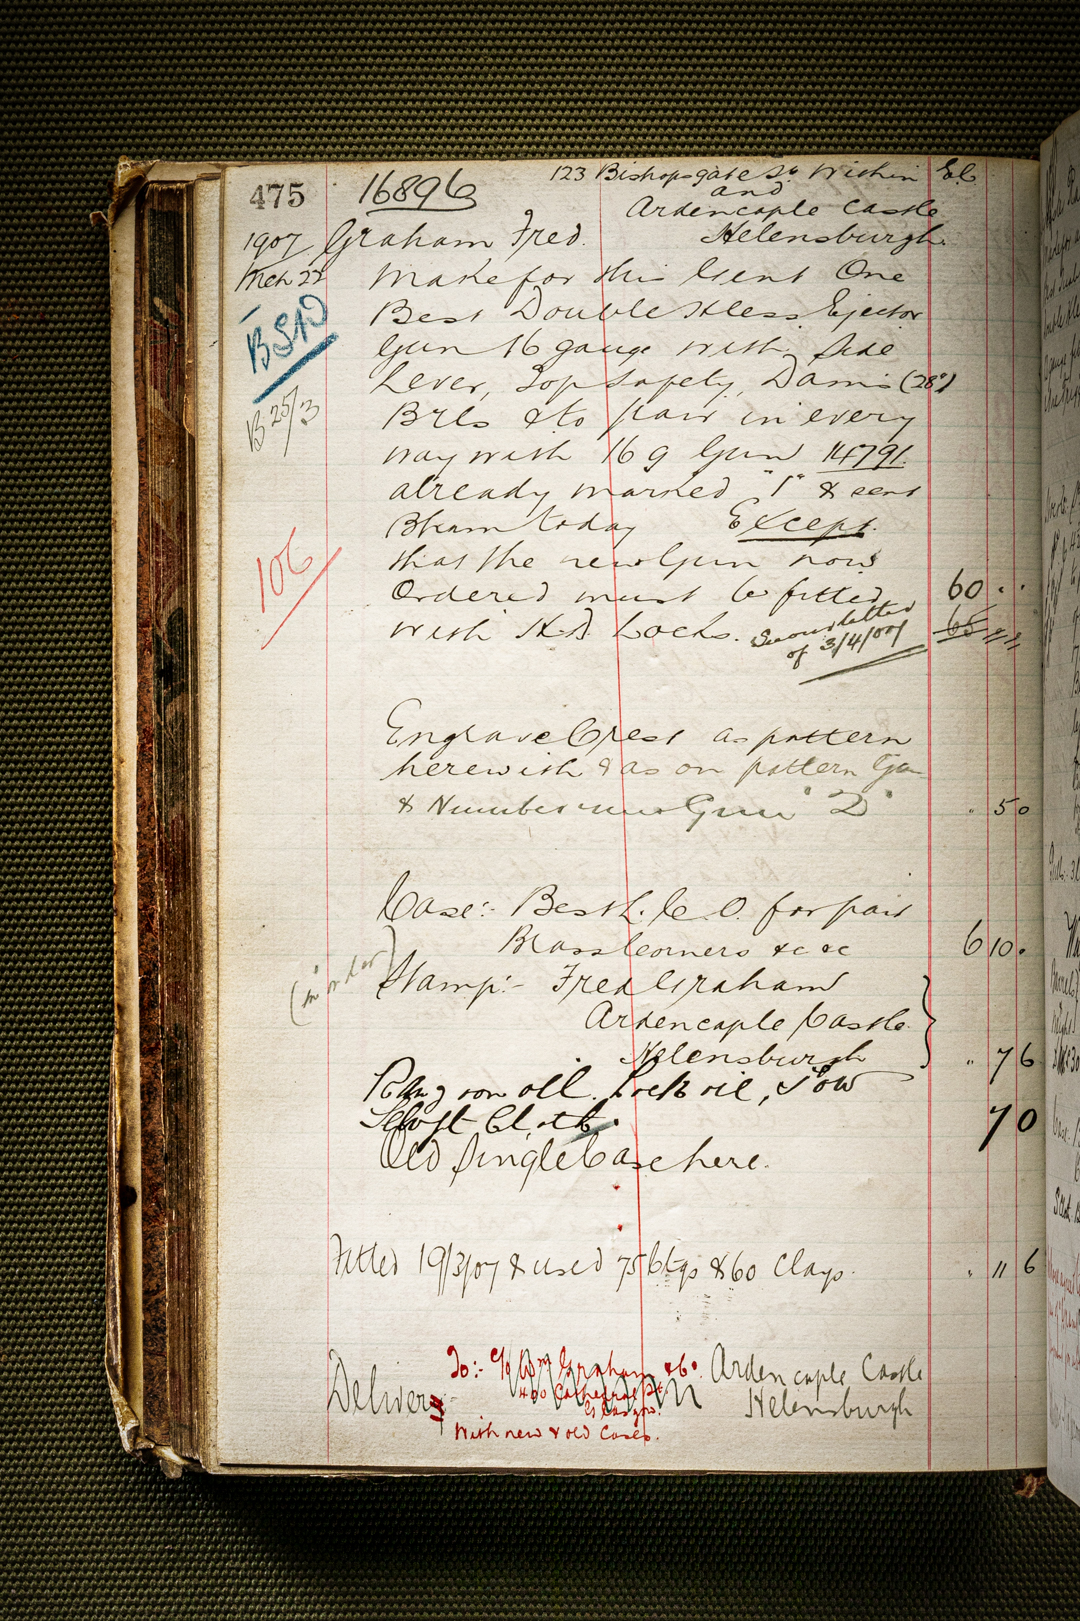 475
16896
123 Bishopsgate St Within E.C.
and
Ardencaple Castle
Helensburgh.
1907 Graham Fred.
Mch 22
Make for this Gent One
Best Double Hless Ejector
Gun 16 gauge with Side
Lever, Top Safety, Dams (28")
Brls & to pair in every
way with 16 g Gun 14791
already marked "1" & sent
Bham today Except
that the new Gun now
Ordered must be fitted 60 . .
with Locks. 65 " "
of 3/4/07
B 25/3
106
Engrave Crest as pattern
herewith & as on pattern Gun
& Number Gun "2" . 5 0
Case:- Best L. C. O. for pair
Brass Corners &c &c 6 10 .
(in order)
Stamp:- Fred Graham
Ardencaple Castle
Helensburgh " 7 6
Rangoon oil. Lock oil, Tow
Cloth. 7 0
Old Single Case here.
Fitted 19/3/07 & used 75 Ctgs & 60 Clays. . 11 6
Deliver:-
To:- c/o Wm Graham & Co.
400 Cathedral St
Glasgow.
With new & old Cases.
Ardencaple Castle
Helensburgh